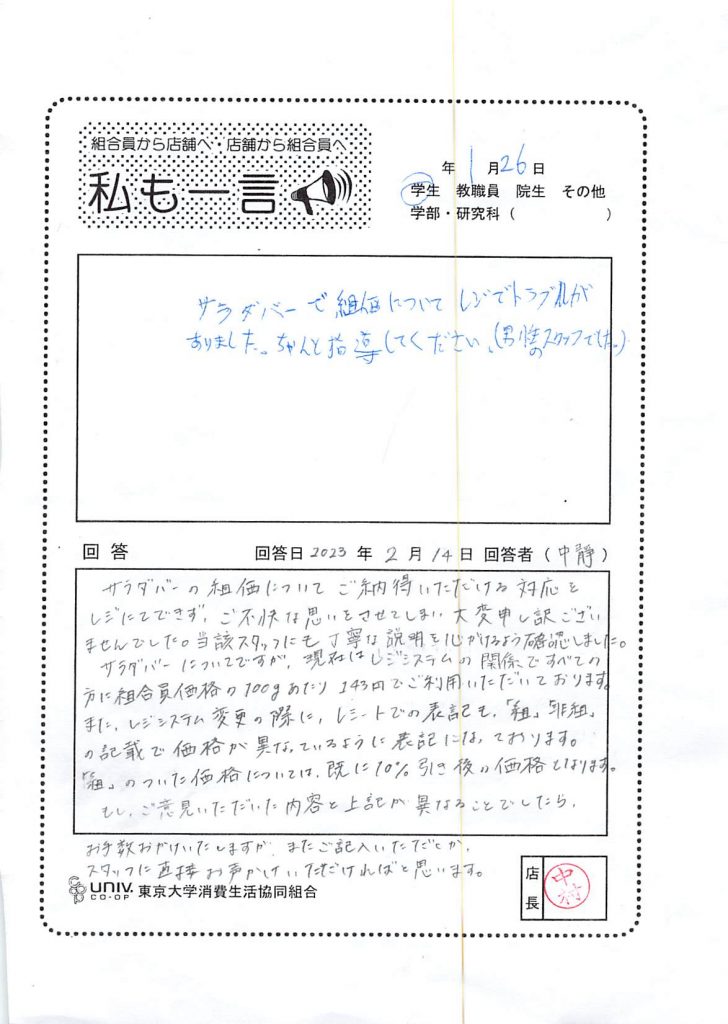 組合員から店舗へ・店舗から組合員へ
私も一言
年 1月26日
学生 教職員 院生 その他
学部・研究科（ ）
サラダバーで組価について レジでトラブルが
ありました。ちゃんと指導してください、(男性のスタッフでした。)
回答 回答日 2023年 2月14日 回答者（中静）
サラダバーの組価について ご納得いただける対応を
レジにてできず、ご不快な思いをさせてしまい 大変申し訳ござい
ませんでした。当該スタッフにも丁寧な説明を心がけるよう確認しました。
サラダバーについてですが、現在はレジシステムの関係ですべての
方に組合員価格の100gあたり 143円でご利用いただいております。
また、レジシステム変更の際に、レシートでの表記も、「組」「非組」
の記載で価格が異なっているように表記になっております。
「組」のついた価格については、既に10%引き後の価格となります。
もし、ご意見いただいた内容と上記が異なることでしたら、
お手数おかけいたしますが、またご記入いただくとか、
スタッフに直接お声かけいただければと思います。
co op UNIV. CO-OP 東京大学消費生活協同組合
店長 中村